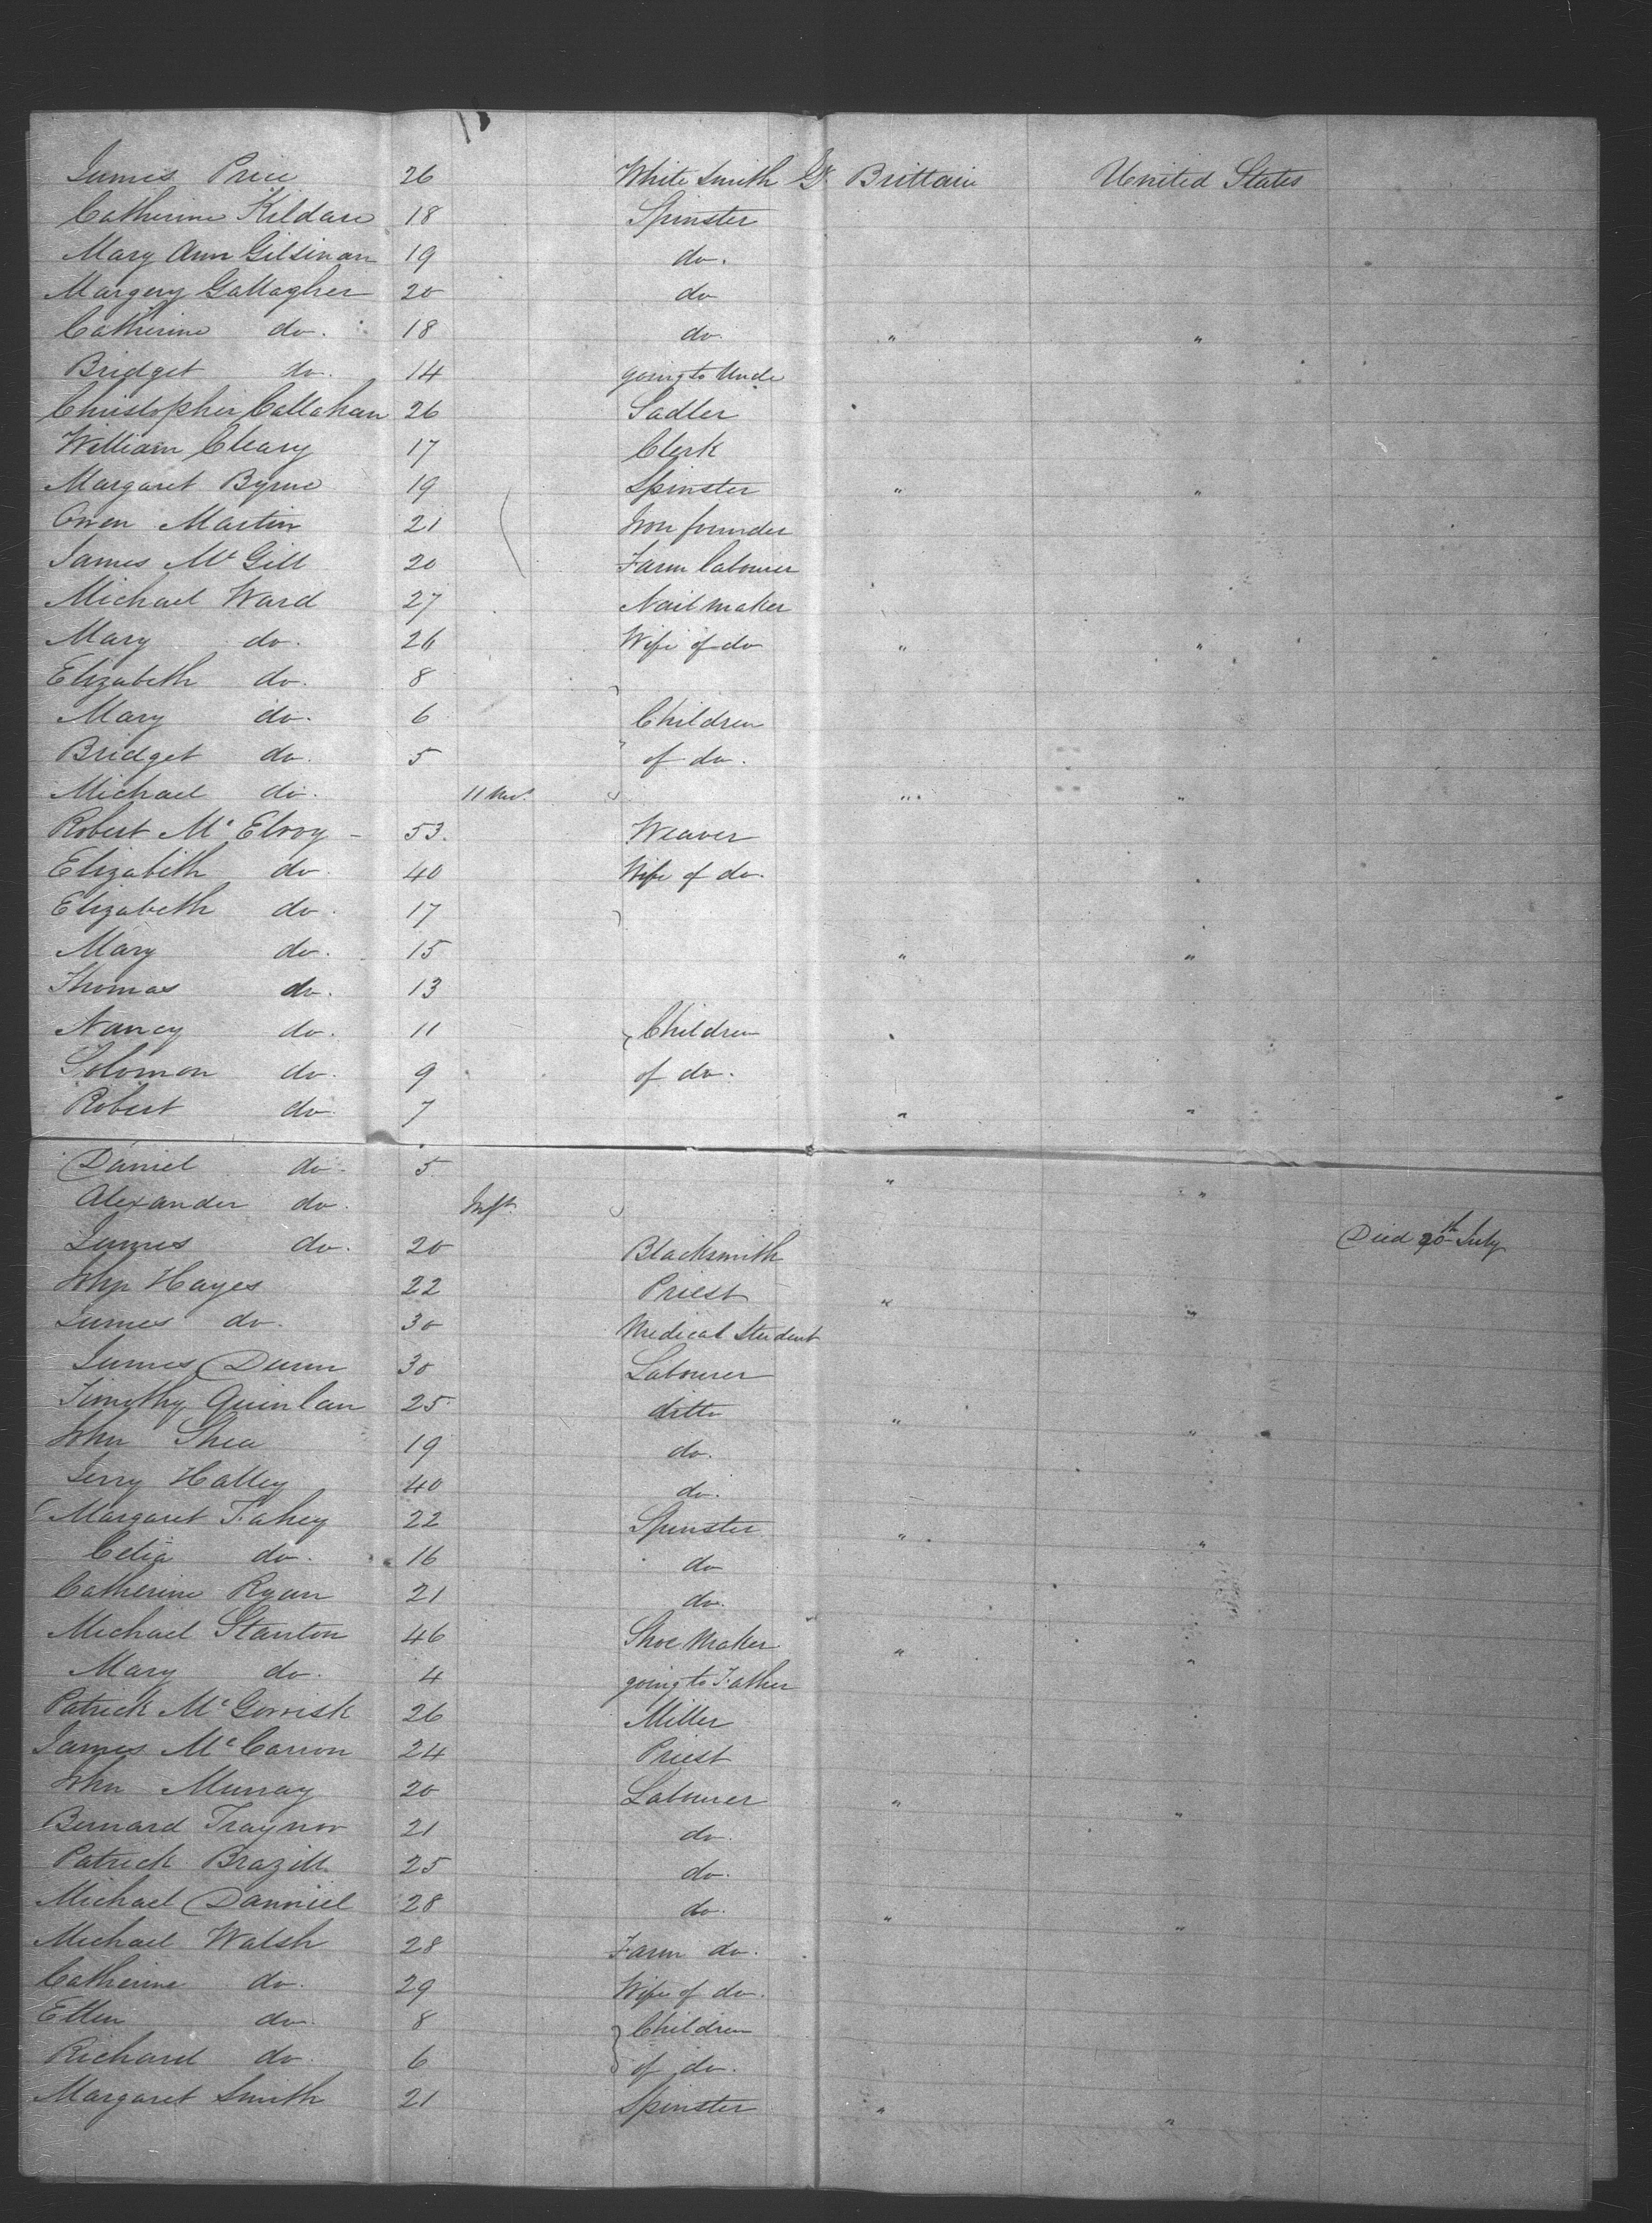 James Price 26 White Smith Gt Brittain United States
Catherine Kildare 18 Spinster
Mary Ann Gilsinan 19 do.
Margery Gallagher 20 do
Catherine do. 18 do. " "
Bridget do. 14 going to Uncle
Christopher Callahan 26 Sadler
William Cleary 17 Clerk
Margaret Byrne 19 Spinster " "
Owen Martin 21 Iron founder
James Mc Gill 20 Farm labourer
Michael Ward 27 Nail maker
Mary do. 26 Wife of do " "
Elizabeth do. 8
Mary do. 6 Children
Bridget do. 5 of do.
Michael do. 11 Mos. " "
Robert Mc Elroy 53. Weaver
Elizabeth do. 40 Wife of do.
Elizabeth do. 17
Mary do. 15 " "
Thomas do. 13
Nancy do. 11 Children
Solomon do. 9 of do.
Robert do. 7 " "
Daniel do. 5 " "
Alexander do. Inft.
James do. 20 Blacksmith Died 20th July
John Hayes 22 Priest " "
James do. 30 Medical Student
James Dunn 30 Labourer
Timothy Quinlan 25 ditto " "
John Shea 19 do.
Jerry Halley 40 do.
Margaret Fahey 22 Spinster " "
Celia do. 16 do
Catherine Ryan 21 do.
Michael Stanton 46 Shoe Maker " "
Mary do. 4 going to Father
Patrick Mc Gorrisk 26 Miller
James Mc Carron 24 Priest
John Murray 20 Labourer " "
Bernard Traynor 21 do.
Patrick Brazill 25 do.
Michael Danniel 28 do. " "
Michael Walsh 28 Farm do.
Catherine do. 29 Wife of do.
Ellen do. 8 Children
Richard do. 6 of do.
Margaret Smith 21 Spinster " "